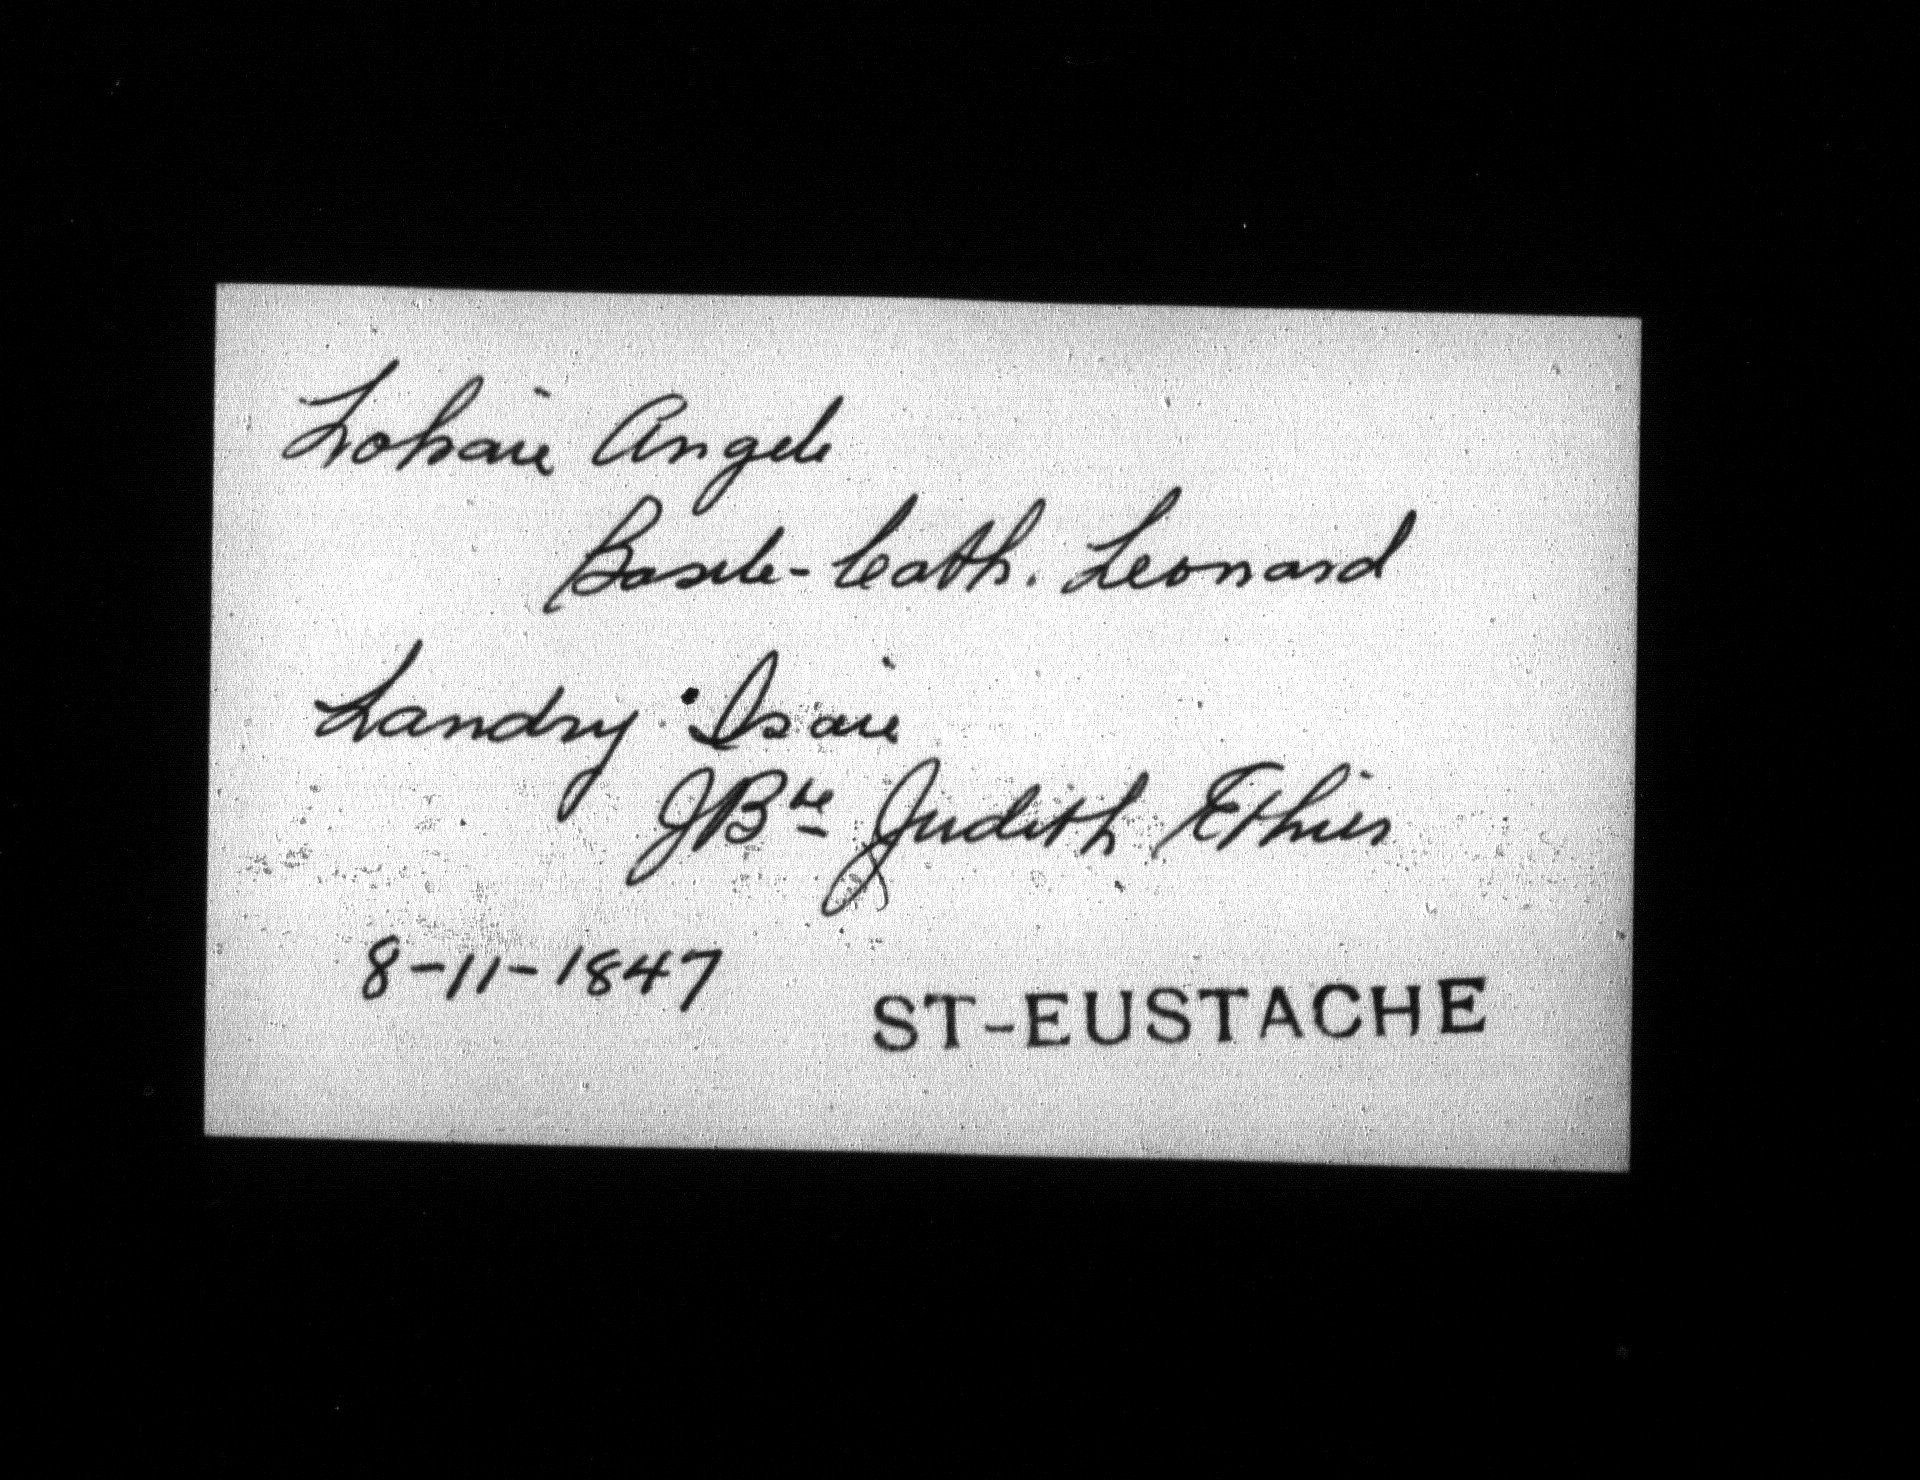 Lohaie Angele
Basile - Cath. Leonard
Landry Isaie
JBte Judith Ethier
8-11-1847
ST-EUSTACHE